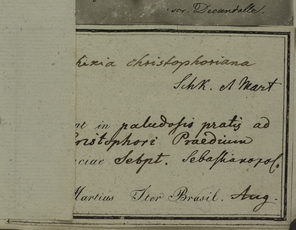 scr. Decandolle.
christophoriana
Schk. & Mart
in paludosis pratis ad
ristophori Praedium
ciae Sebpt. Sebastianopol.
Martius Iter Brasil. Aug.